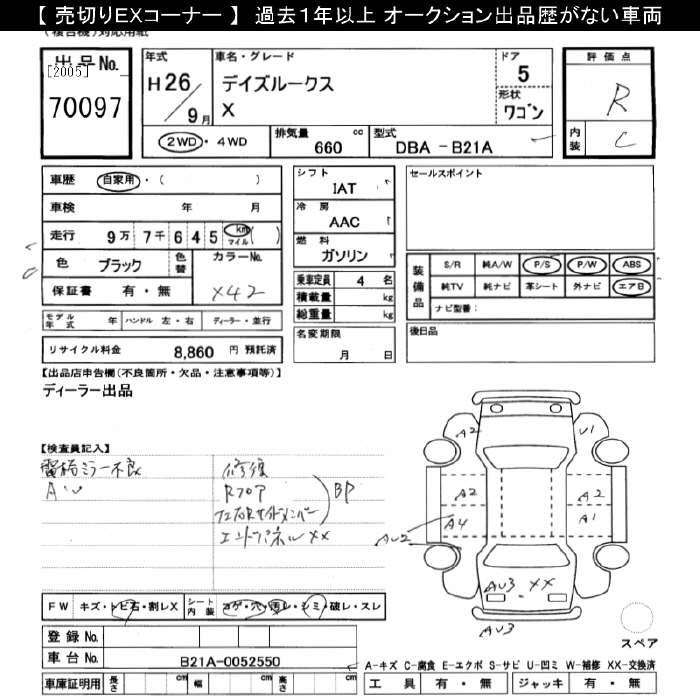 【 売切りEXコーナー 】 過去１年以上 オークション出品歴がない車両
出品No.
[2005]
70097
年式
H26/9月
車名・グレード
デイズルークス
X
ドア
5
形状
ワゴン
評価点
R
内装
C
2WD・4WD
排気量 cc
660
型式
DBA - B21A
車歴 自家用・( )
車検 年 月
走行 9万 7千 6 4 5 km マイル ( )
色 ブラック 色替 カラーNo.
X42
保証書 有・無
モデル年式 年 ハンドル 左・右 ディーラー・並行
リサイクル料金 8,860 円 預託済
シフト
IAT
冷房
AAC
燃料
ガソリン
乗車定員 4 名
積載量 kg
総重量 kg
名変期限
月 日
セールスポイント
装備品
S/R 純A/W P/S P/W ABS
純TV 純ナビ 革シート 外ナビ エアB
ナビ型番：
後日品
【出品店申告欄(不良箇所・欠品・注意事項等)】
ディーラー出品
【検査員記入】
電格ミラー不良
修復
Rフロア
BP
エンドパネルXX
A2
U1
A2
A2
A4
A1
AU2
AU3 XX
AU3
FW キズ・トビ石・割レX シート内装 コゲ・穴・汚レ・シミ・破レ・スレ
登録 No.
車台 No. B21A-0052550
車庫証明用 長さ cm 幅 cm 高さ cm
スペア
A-キズ C-腐食 E-エクボ S-サビ U-凹ミ W-補修 XX-交換済
工具 有・無 ジャッキ 有・無